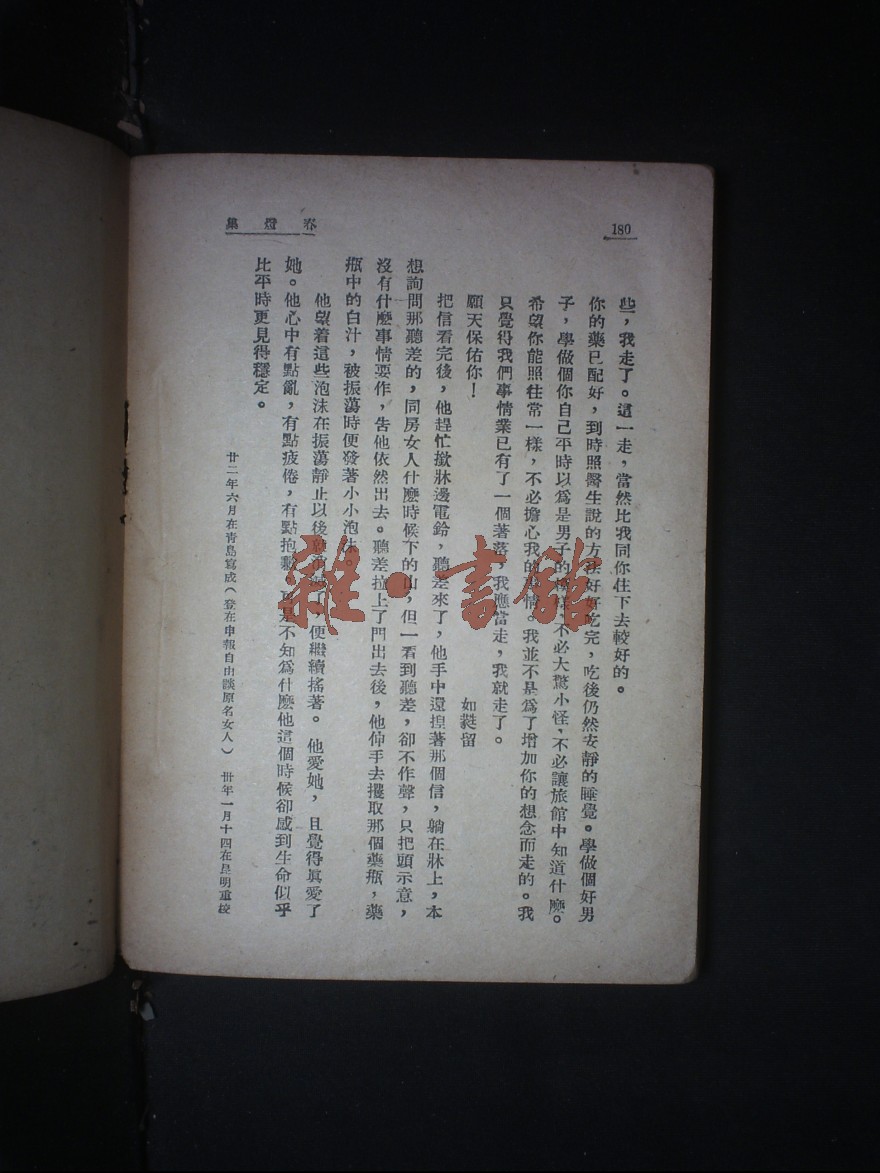 180
春燈集
些，我走了。這一走，當然比我同你住下去較好的。
你的藥已配好，到時照醫生說的方法好好吃完，吃後仍然安靜的睡覺。學做個好男
子，學做個你自己平時以爲是男子的模樣，不必大驚小怪，不必讓旅館中知道什麼。
希望你能照往常一樣，不必擔心我的事情。我並不是爲了增加你的想念而走的。我
只覺得我們事情業已有了一個著落，我應當走，我就走了。
願天保佑你！
如蕤留
把信看完後，他趕忙撳牀邊電鈴，聽差來了，他手中還揑著那個信，躺在牀上，本
想詢問那聽差的，同房女人什麼時候下的山，但一看到聽差，卻不作聲，只把頭示意，
沒有什麼事情要作，吿他依然出去。聽差拉上了門出去後，他伸手去攫取那個藥瓶，藥
瓶中的白汁，被振蕩時便發著小小泡沫。
他望着這些泡沫在振蕩靜止以後就消滅了，便繼續搖著。他愛她，且覺得眞愛了
她。他心中有點亂，有點疲倦，有點抱歉，可是不知爲什麼他這個時候卻感到生命似乎
比平時更見得穩定。
廿二年六月在靑島寫成（登在申報自由談原名女人） 卅年一月十四在昆明重校
雜·書館